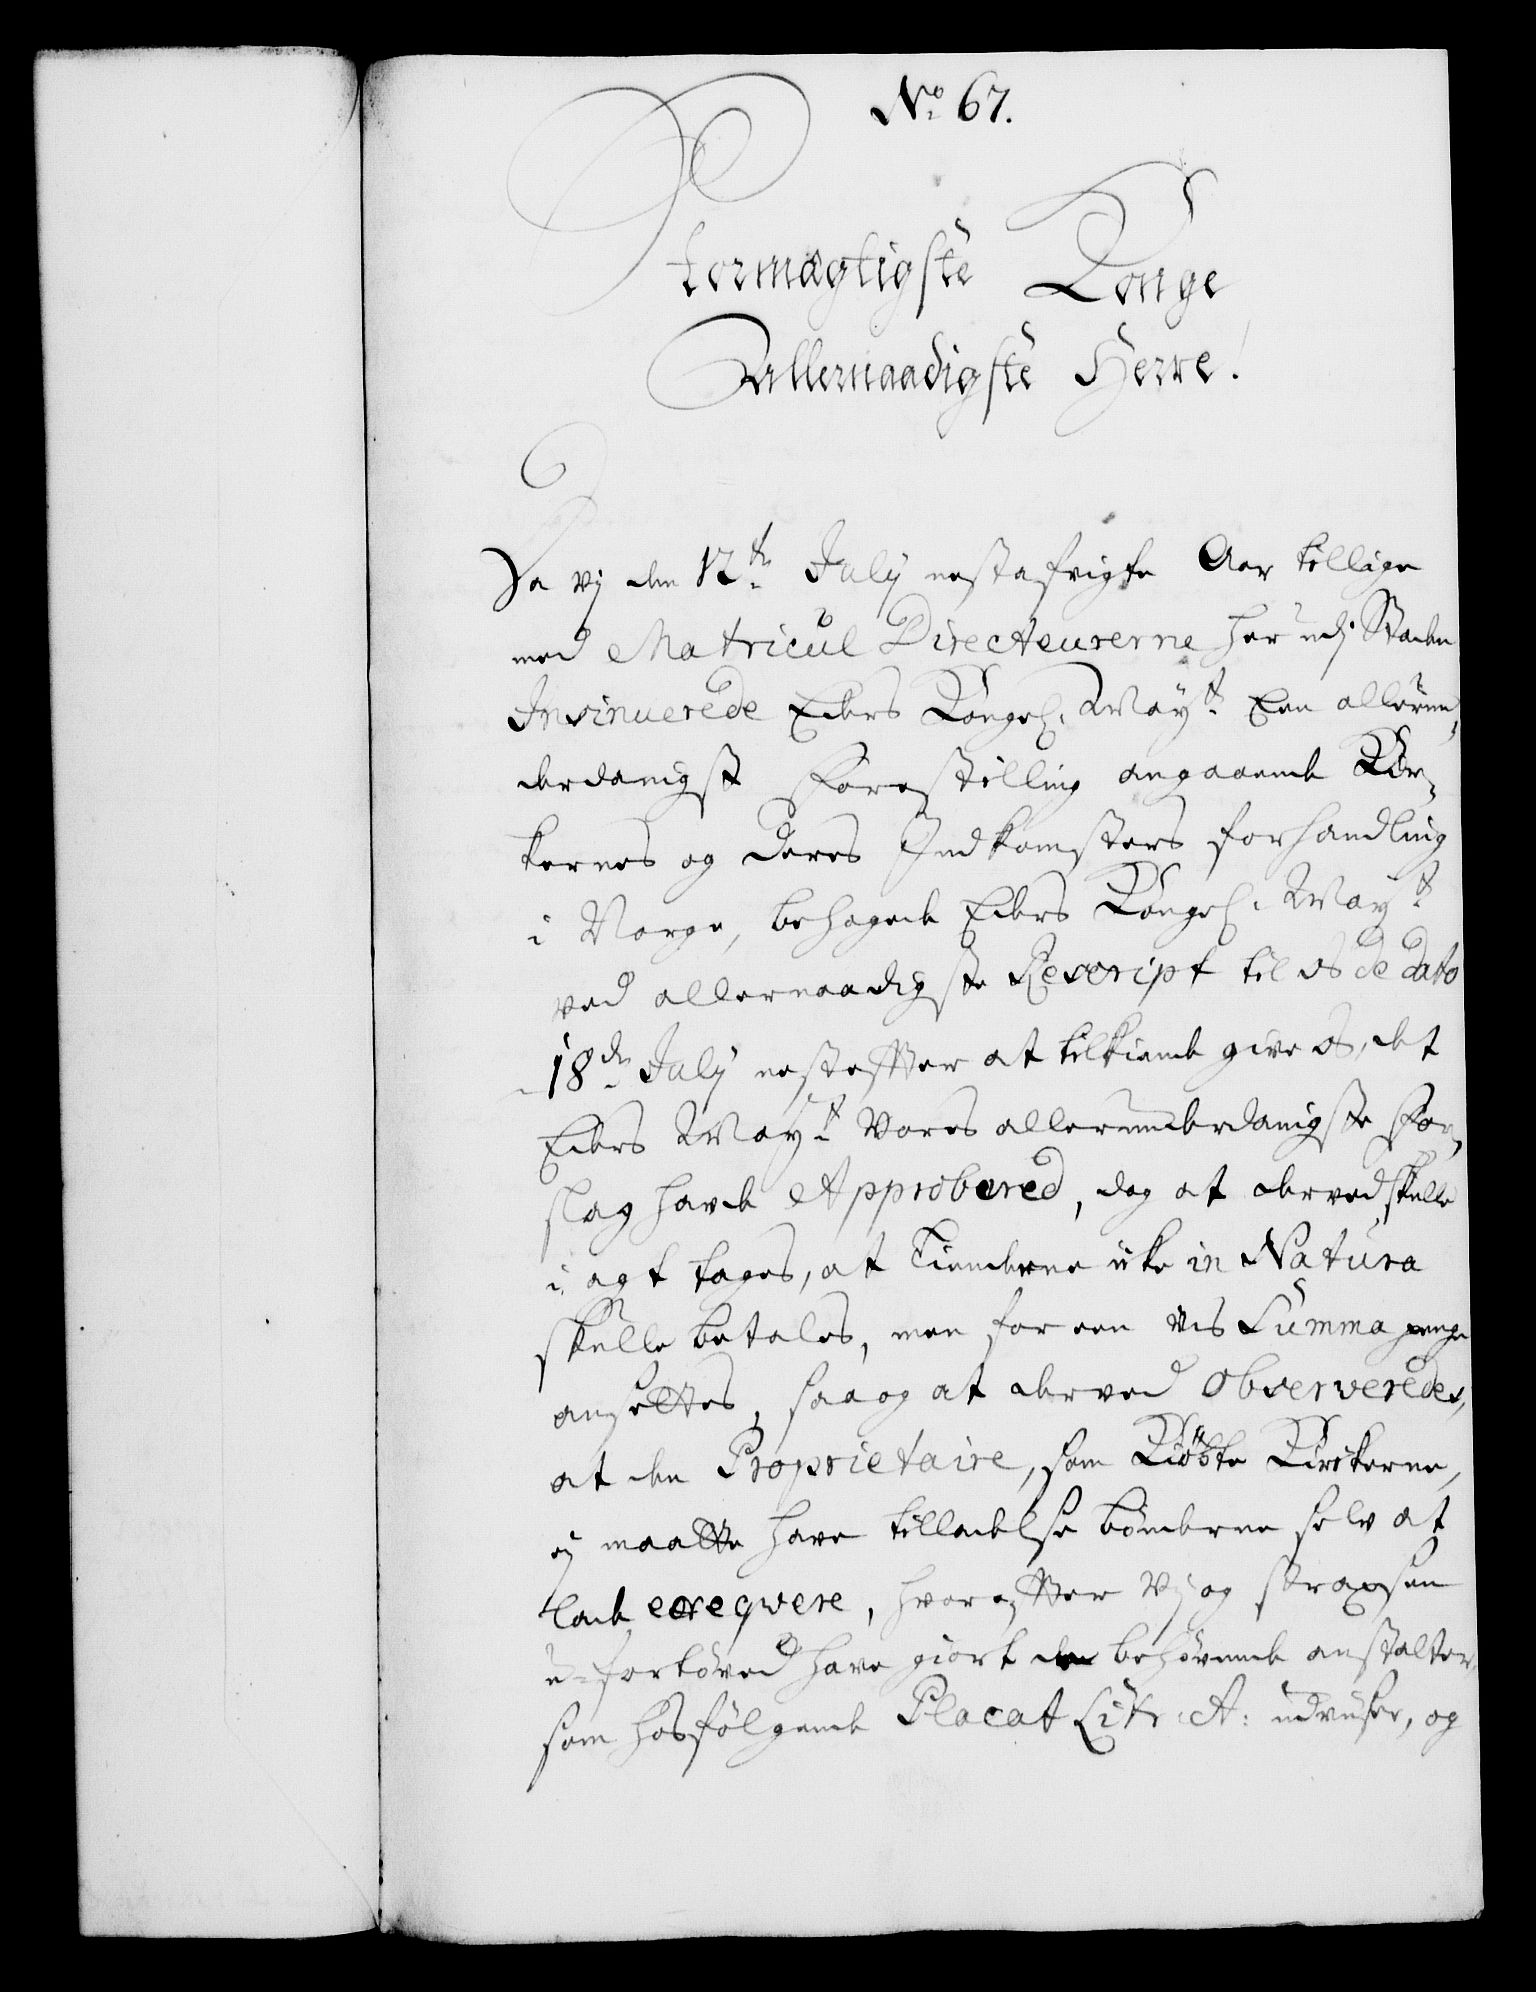 No. 67.
Stormægtigste Konge
Allernaadigste Herre!
Da vj den 12te July nestafvigte Aar tillige
med Matricul Directeurerne her udj Staden
Insinuerede Eders Kongel. Mayt. Een allerun„
derdanigst Forestilling angaaende Kir„
kernes og deres Indkomsters forhandling
i Norge, behagede Eders Kongel. Mayt.
ved allernaadigste Rescript til os de dato
18de July nestefter at tilkiende give os, det
Eders Mayt. Vores allerunderdanigste For„
slag havde Approbered, dog at derved skulle
i agt tages, at Tienderne icke in Natura
skulle betales, men for een vis Summa penge
ansettes, saa og at derved observeredes,
at den Proprietaire, som Kiøbte Kirkerne,
ej maatte have tilladelse bønderne selv at
lade exeqvere, hvorefter Vj og straxsen
u-fortøved have giort de behøvende anstalter,
som hosfølgende Placat Litr: A: udviser, og